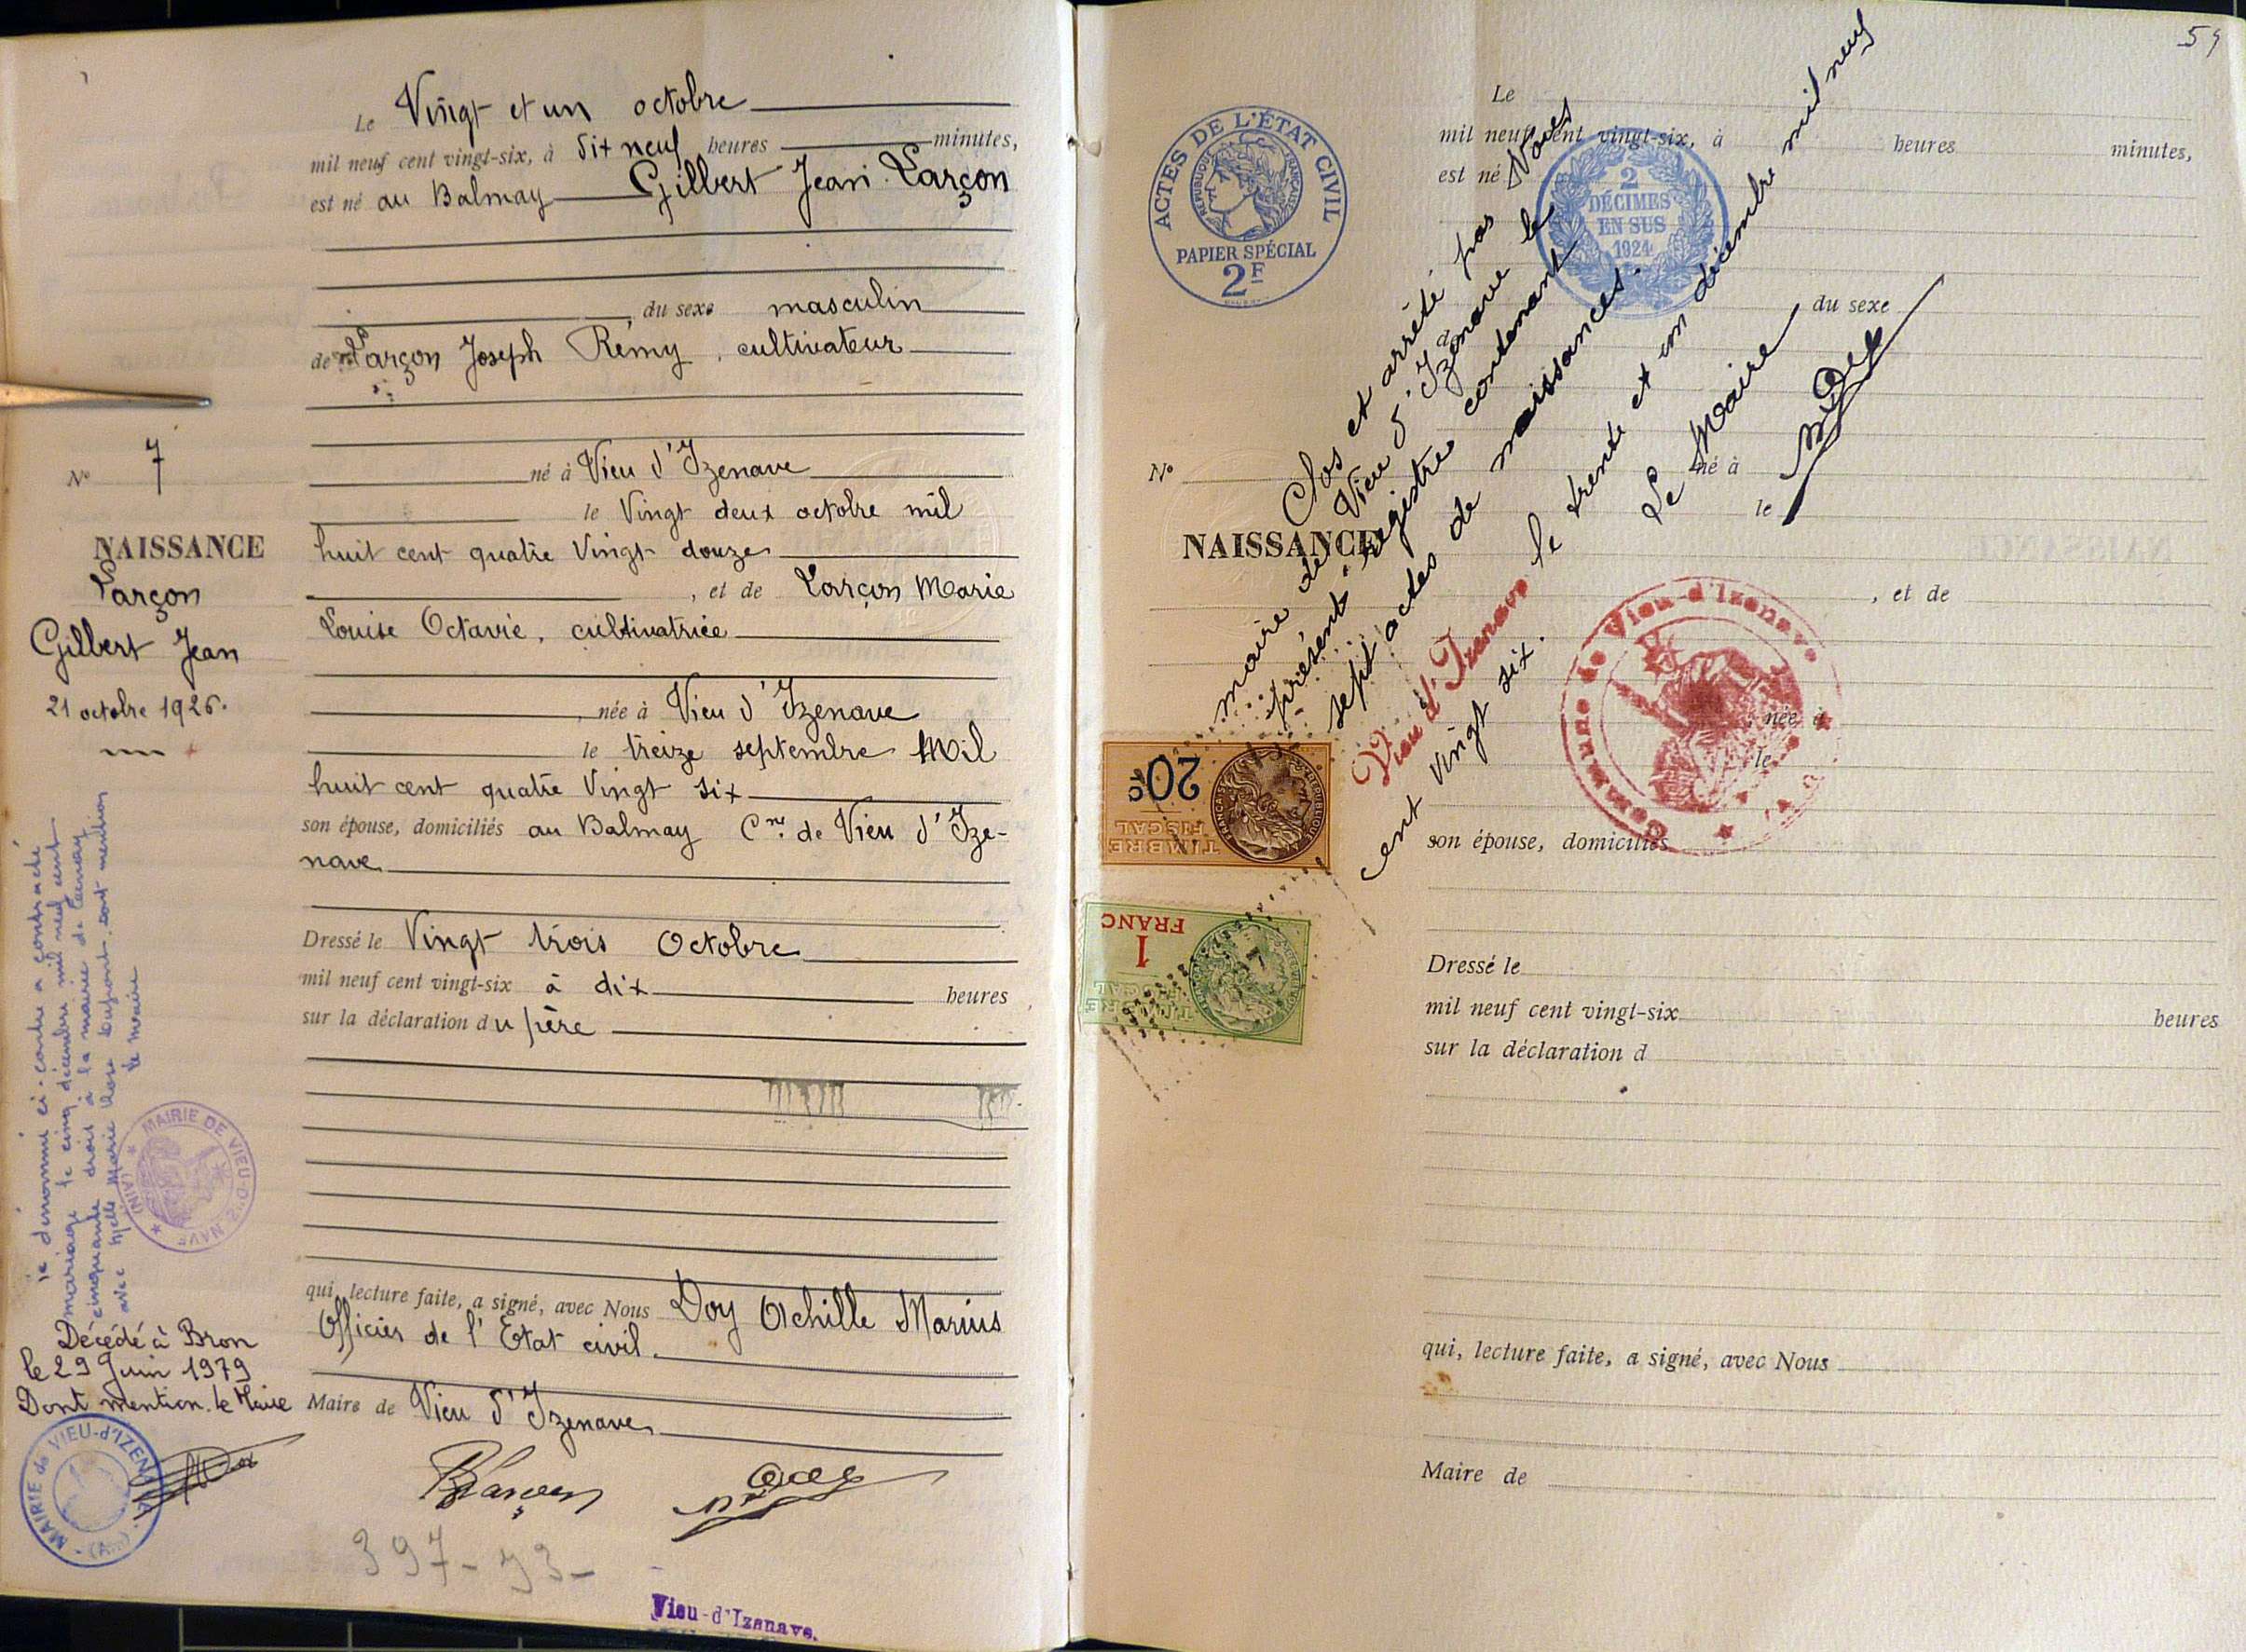 Le Vingt et un octobre
mil neuf cent vingt-six, à dix neuf heures minutes,
est né au Balmay Gilbert Jean Larçon
du sexe masculin
de Larçon Joseph Rémy, cultivateur
né à Vieu d'Izenave
le Vingt deux octobre mil
huit cent quatre Vingt douze
, et de Larçon Marie
Louise Octavie, cultivatrice
, née à Vieu d'Izenave
le treize septembre Mil
huit cent quatre Vingt six
son épouse, domiciliés au Balmay Cne de Vieu d'Ize-
nave
Dressé le Vingt trois Octobre
mil neuf cent vingt-six à dix heures
sur la déclaration du père
qui, lecture faite, a signé, avec Nous Doy Achille Marius
Officier de l'Etat civil.
Maire de Vieu d'Izenave
397-73-
Vieu-d'Izenave.
No 7
NAISSANCE
Larçon
Gilbert Jean
21 octobre 1926.
le dénommé ci-contre a contracté
mariage le cinq décembre mil neuf cent
cinquante trois à la mairie de
avec Melle Marie Rose Dupont. dont mention
le maire
MAIRIE DE VIEU D'IZENAVE
(AIN)
Décédé à Bron
le 29 Juin 1979
Dont mention. le Maire
MAIRIE de VIEU-d'IZENAVE
59
ACTES DE L'ÉTAT CIVIL
RÉPUBLIQUE FRANÇAISE
PAPIER SPÉCIAL
2F
2
DÉCIMES
EN SUS
1924
Le
mil neuf cent vingt-six, à heures minutes,
est né
du sexe
né à
le
No
NAISSANCE
, et de
, née à
le
son épouse, domiciliés
Dressé le
mil neuf cent vingt-six heures
sur la déclaration d
qui, lecture faite, a signé, avec Nous
Maire de
Clos et arrêté par Nous
maire de Vieu d'Izenave le
présent registre contenant
sept actes de naissances.
Vieu d'Izenave le trente et un décembre mil neuf
cent vingt six.
Le Maire
Commune de Vieu-d'Izenave
20c
TIMBRE
FISCAL
1
FRANC
TIMBRE
FISCAL